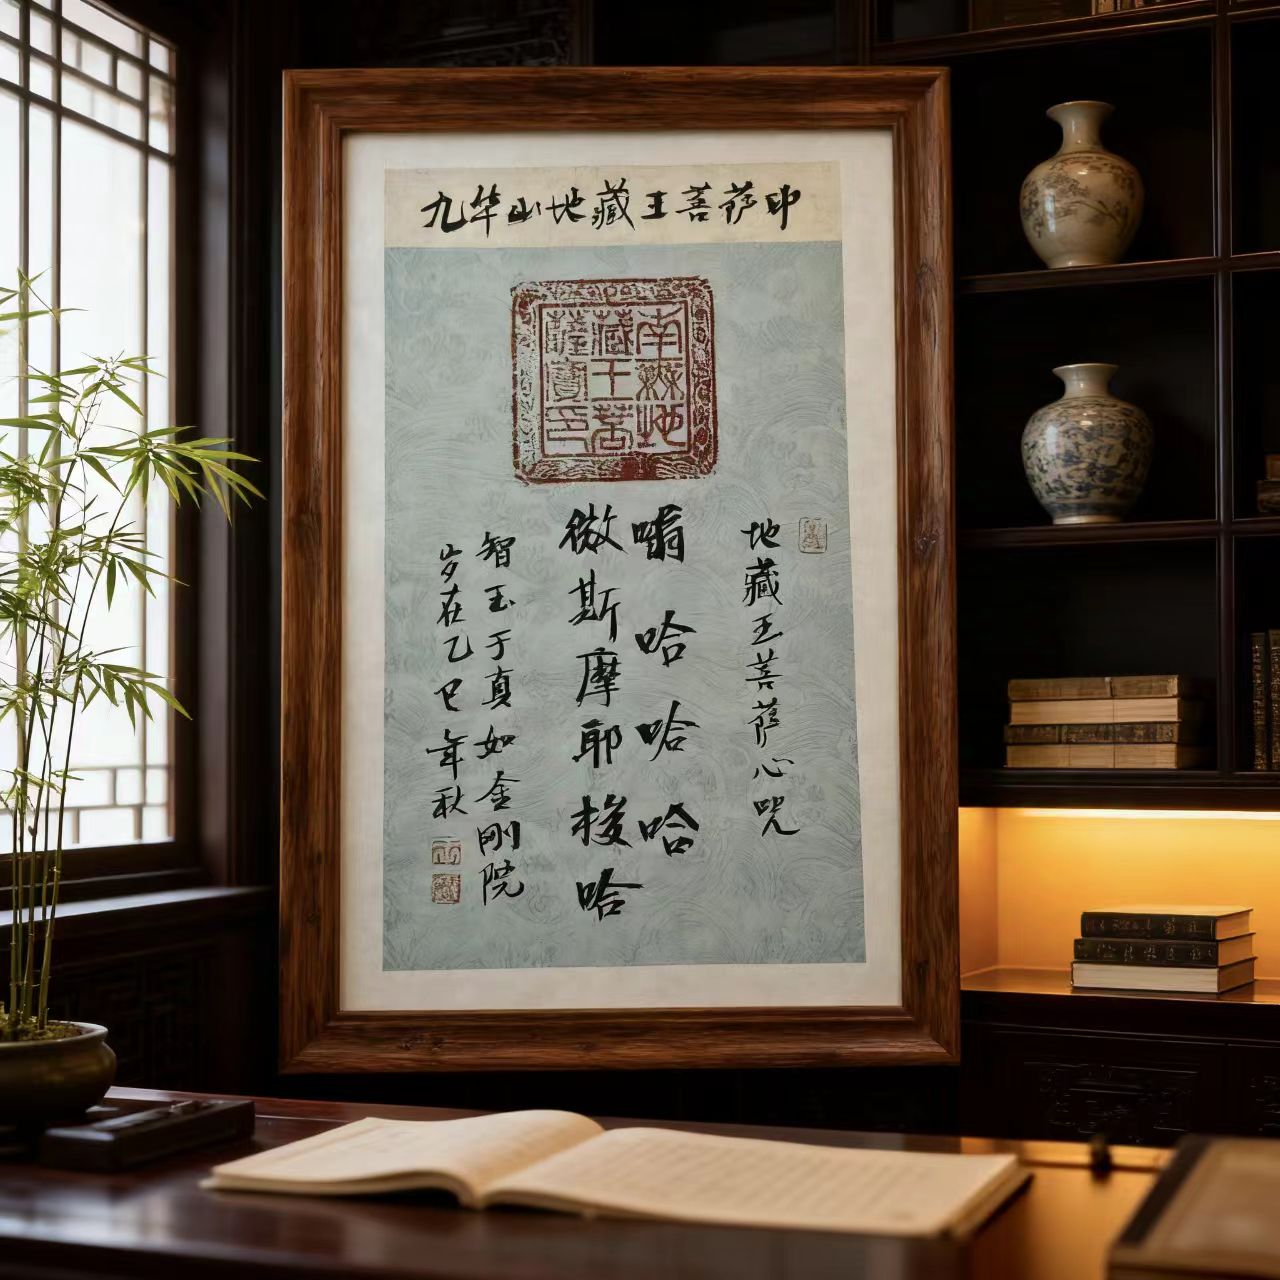 九华山地藏王菩萨印
南無地
藏王菩
薩寶印
地藏王菩萨心咒
嗡哈哈哈
微斯摩耶梭哈
智玉于真如金刚院
岁在乙巳年秋